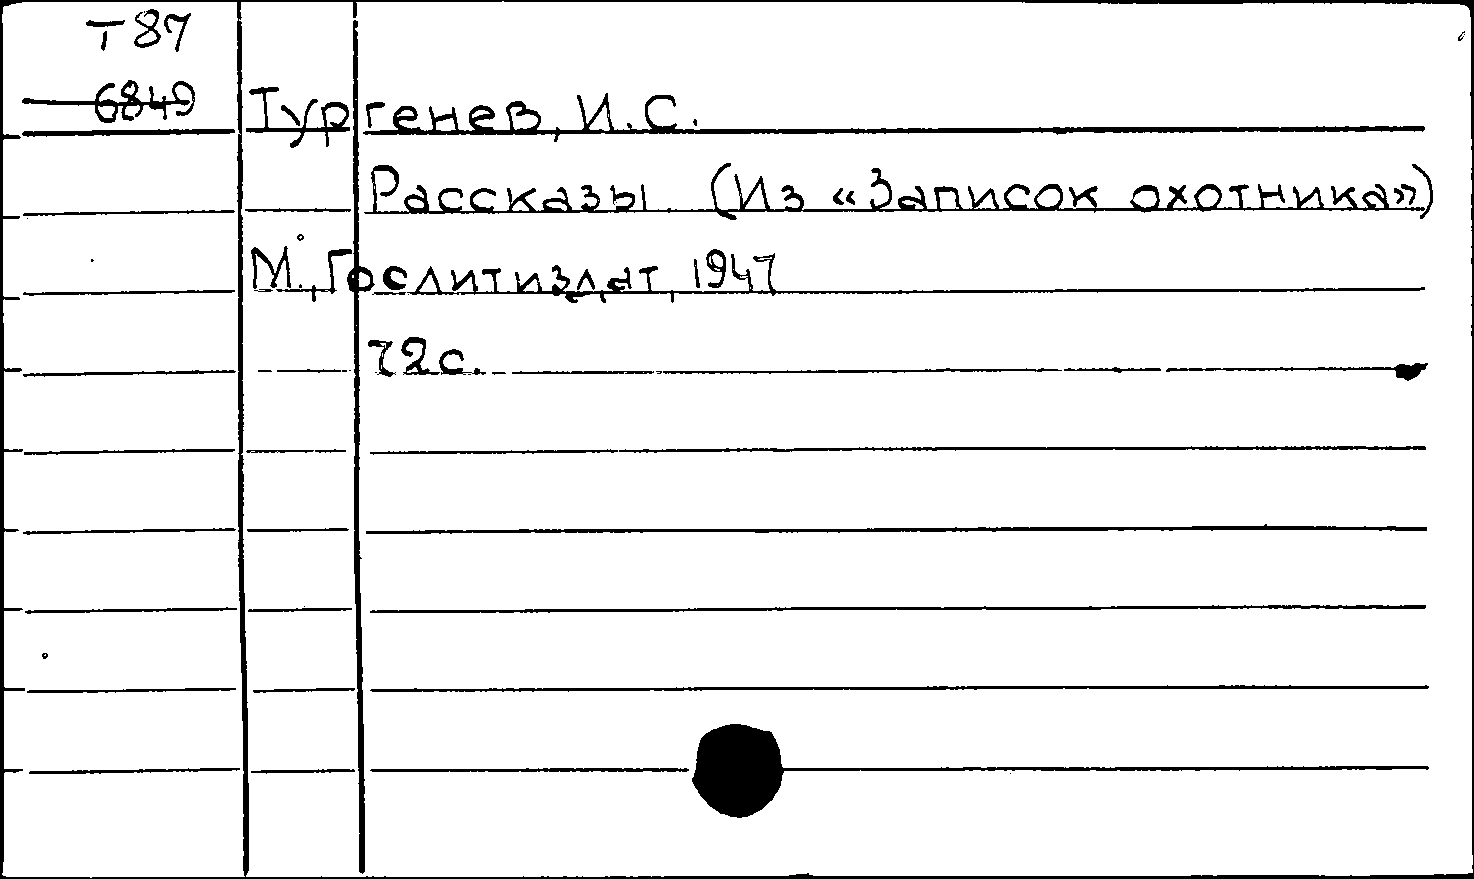 Т87
6849
Тургенев, И.С.
Рассказы (Из «Записок охотника»)
М., Гослитиздат, 1947
72с.